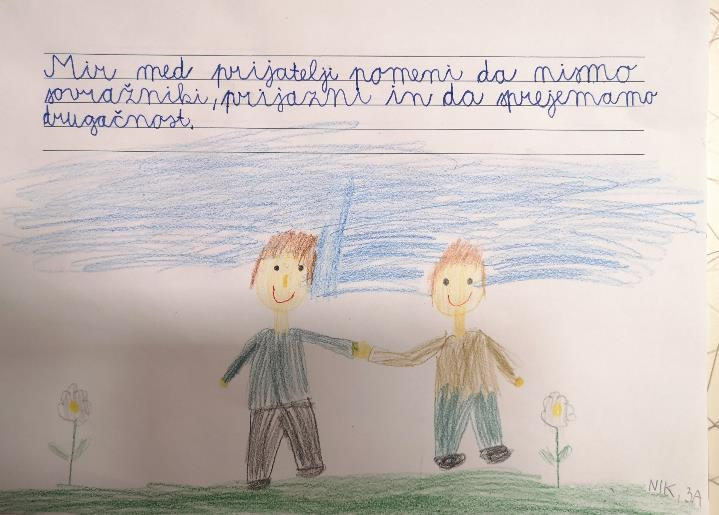 Mir med prijatelji pomeni da nismo
sovražniki, prijazni in da sprejemamo
drugačnost.
NIK, 3A